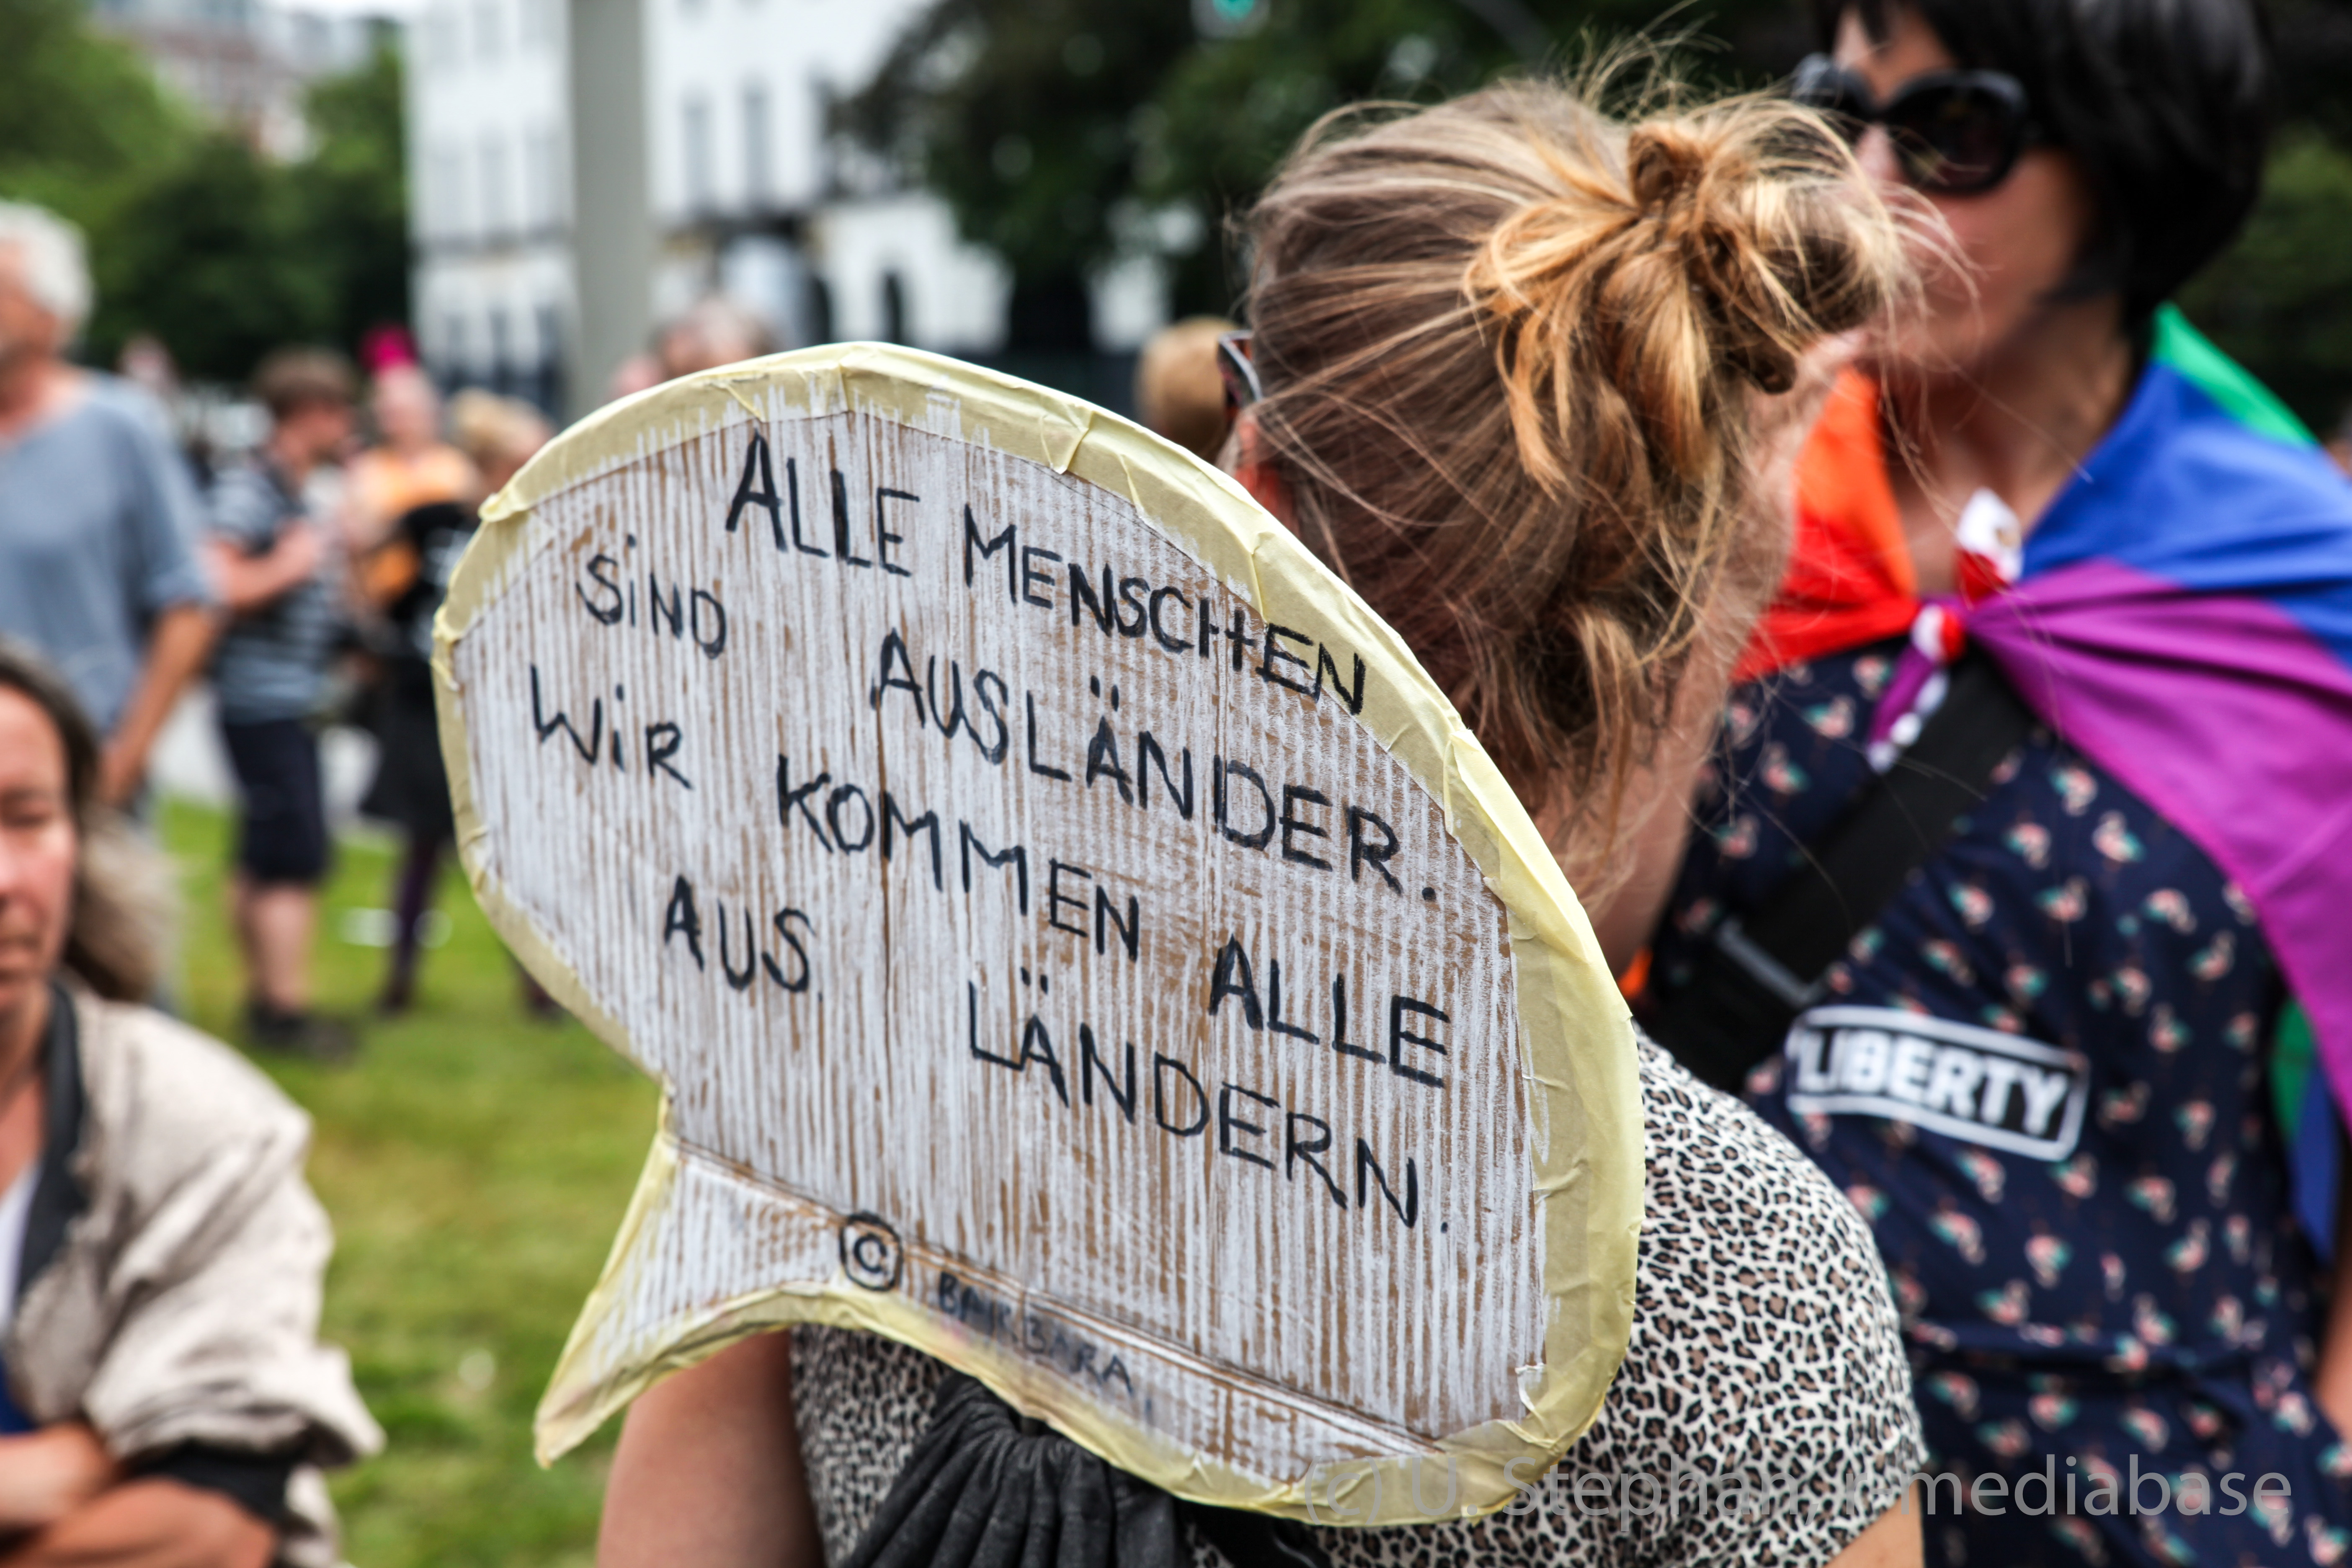 ALLE MENSCHEN
SiND AUSLÄNDER.
WiR KOMMEN ALLE
AUS LÄNDERN.
© BARBARA
LIBERTY
(c) U. Stephan, r-mediabase